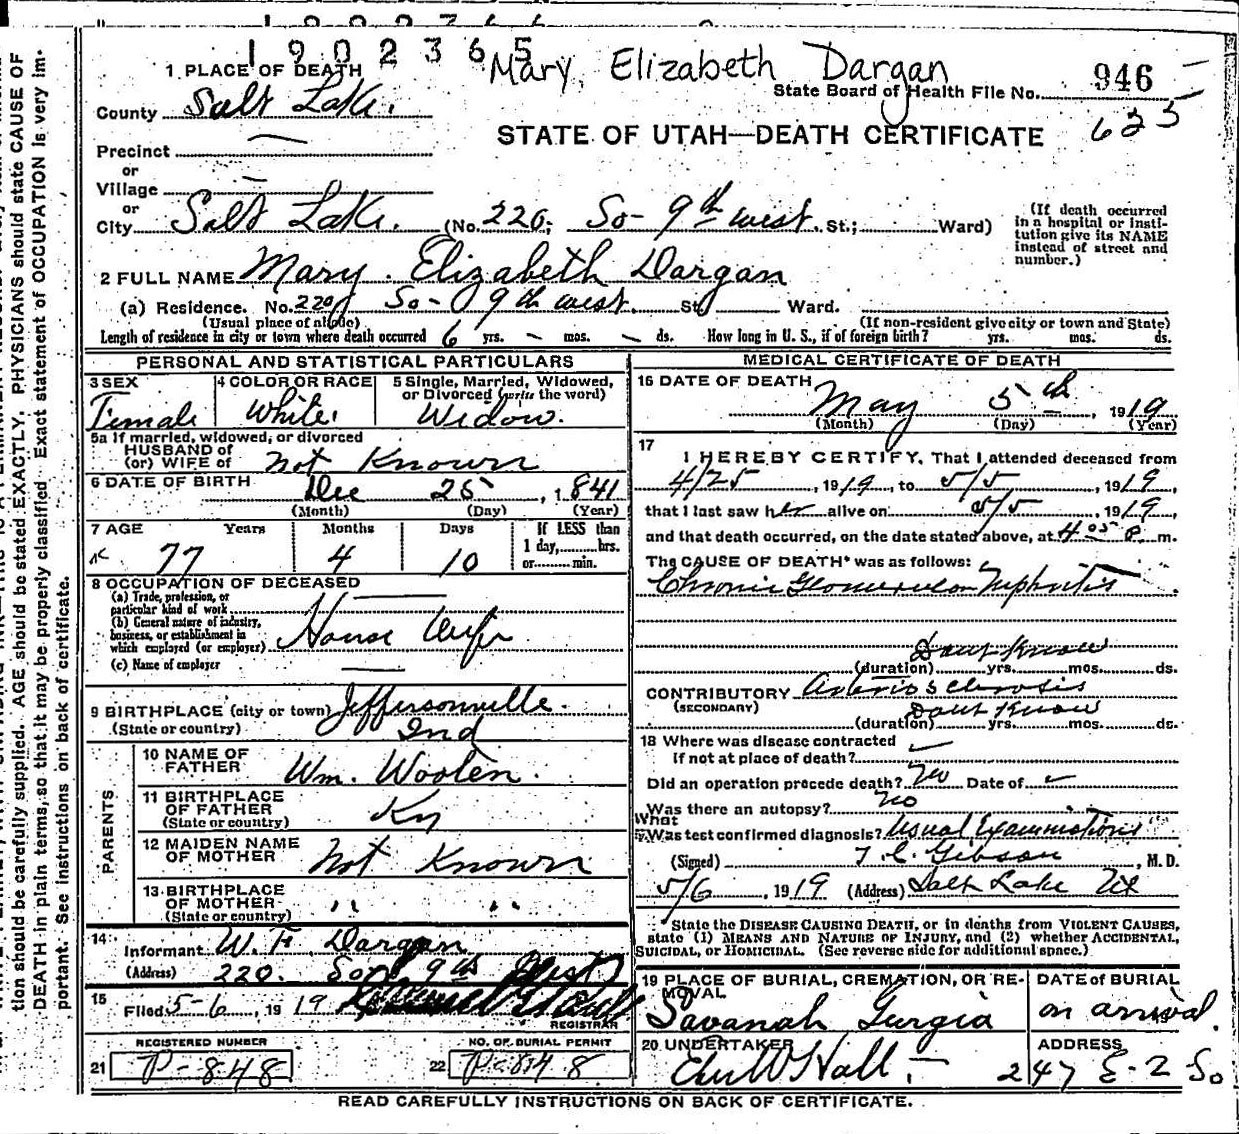 1902365
Mary, Elizabeth Dargan
1 PLACE OF DEATH
946
State Board of Health File No.
County Salt Lake.
635
STATE OF UTAH—DEATH CERTIFICATE
Precinct
or
Village
or
City Salt Lake. (No. 220; So- 9th west. St.; Ward)
(If death occurred in a hospital or insti-
tution give its NAME instead of street and number.)
2 FULL NAME Mary. Elizabeth Dargan
(a) Residence. No. 220 So- 9th west. St. Ward.
(Usual place of abode) (If non-resident give city or town and State)
Length of residence in city or town where death occurred 6 yrs. — mos. — ds. How long in U. S., if of foreign birth? yrs. mos. ds.
PERSONAL AND STATISTICAL PARTICULARS
3 SEX 4 COLOR OR RACE 5 Single, Married, Widowed, or Divorced (write the word)
Female White Widow.
5a If married, widowed, or divorced
HUSBAND of
(or) WIFE of not Known
6 DATE OF BIRTH Dec 25, 1841
(Month) (Day) (Year)
7 AGE Years Months Days If LESS than
1 day, hrs.
or min.
77 4 10
8 OCCUPATION OF DECEASED
(a) Trade, profession, or
particular kind of work
(b) General nature of industry,
business, or establishment in
which employed (or employer) House Wife
(c) Name of employer
9 BIRTHPLACE (city or town) Jeffersonville.
(State or country) Ind
PARENTS
10 NAME OF
FATHER Wm. Wooten.
11 BIRTHPLACE
OF FATHER Ky
(State or country)
12 MAIDEN NAME
OF MOTHER Not Known
13 BIRTHPLACE
OF MOTHER " "
(State or country)
14 Informant W. F. Dargan
(Address) 220. So 9th West
15 Filed 5-6, 1919
REGISTRAR
REGISTERED NUMBER NO. OF BURIAL PERMIT
21 P-848 22 P-848
MEDICAL CERTIFICATE OF DEATH
16 DATE OF DEATH
May 5th, 1919
(Month) (Day) (Year)
17
I HEREBY CERTIFY, That I attended deceased from
4/25, 1919, to 5/5, 1919,
that I last saw her alive on 5/5, 1919,
and that death occurred, on the date stated above, at 4 05 P m.
The CAUSE OF DEATH* was as follows:
Chronic Glomerular Nephritis
Dont Know
(duration) yrs. mos. ds.
CONTRIBUTORY Arteriosclerosis
(SECONDARY) Dont Know
(duration) yrs. mos. ds.
18 Where was disease contracted
if not at place of death?
Did an operation precede death? No Date of
Was there an autopsy? no
What
Was test confirmed diagnosis? Usual Examinations
(Signed) T. C. Gibson, M. D.
5/6, 1919 (Address) Salt Lake Ut
*State the DISEASE CAUSING DEATH, or in deaths from VIOLENT CAUSES,
state (1) MEANS AND NATURE OF INJURY, and (2) whether ACCIDENTAL,
SUICIDAL, or HOMICIDAL. (See reverse side for additional space.)
19 PLACE OF BURIAL, CREMATION, OR RE-
MOVAL
DATE OF BURIAL
Savanah Gurgia on arrival. 19
20 UNDERTAKER ADDRESS
Eber W Hall. 247 E-2 So
READ CAREFULLY INSTRUCTIONS ON BACK OF CERTIFICATE.
tion should be carefully supplied. AGE should be stated EXACTLY. PHYSICIANS should state CAUSE OF
DEATH in plain terms, so that it may be properly classified. Exact statement of OCCUPATION is very im-
portant. See instructions on back of certificate.